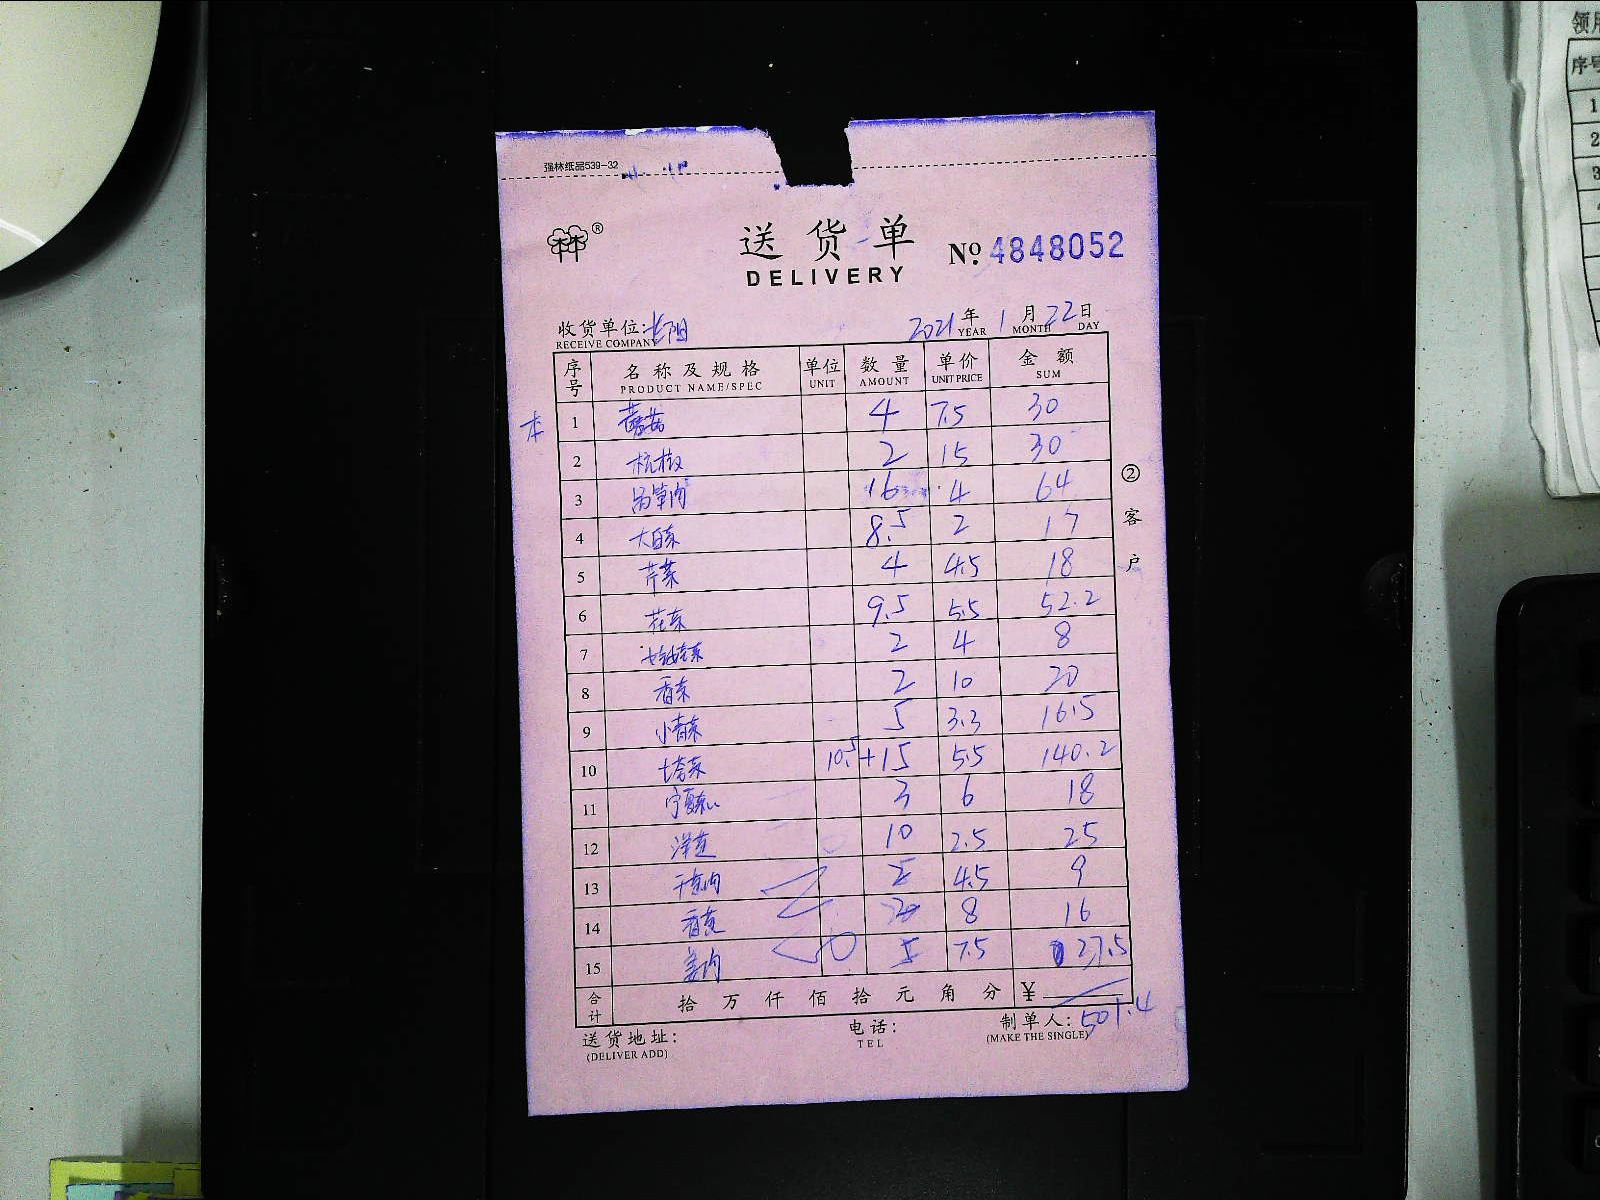 强林纸品539-32
®
送货单 №4848052
DELIVERY
收货单位: 2021年 1月 22日
RECEIVE COMPANY YEAR MONTH DAY
序号 名称及规格 单位 数量 单价 金额
PRODUCT NAME/SPEC UNIT AMOUNT UNIT PRICE SUM
本
1 蘑菇 4 7.5 30
2 杭椒 2 15 30
3 16 4 64
4 大白菜 8.5 2 17
5 芹菜 4 4.5 18
6 花菜 9.5 5.5 52.2
7 2 4 8
8 香菜 2 10 20
9 小青菜 5 3.3 16.5
10 10.5+15 5.5 140.2
11 3 6 18
12 洋芋 10 2.5 25
13 2 4.5 9
14 8 16
15 姜肉 5 7.5 37.5
合计 拾万仟佰拾元角分 ¥ 501.4
②客户
送货地址: 电话: 制单人:
(DELIVER ADD) TEL (MAKE THE SINGLE)
领用
序号
1
2
3